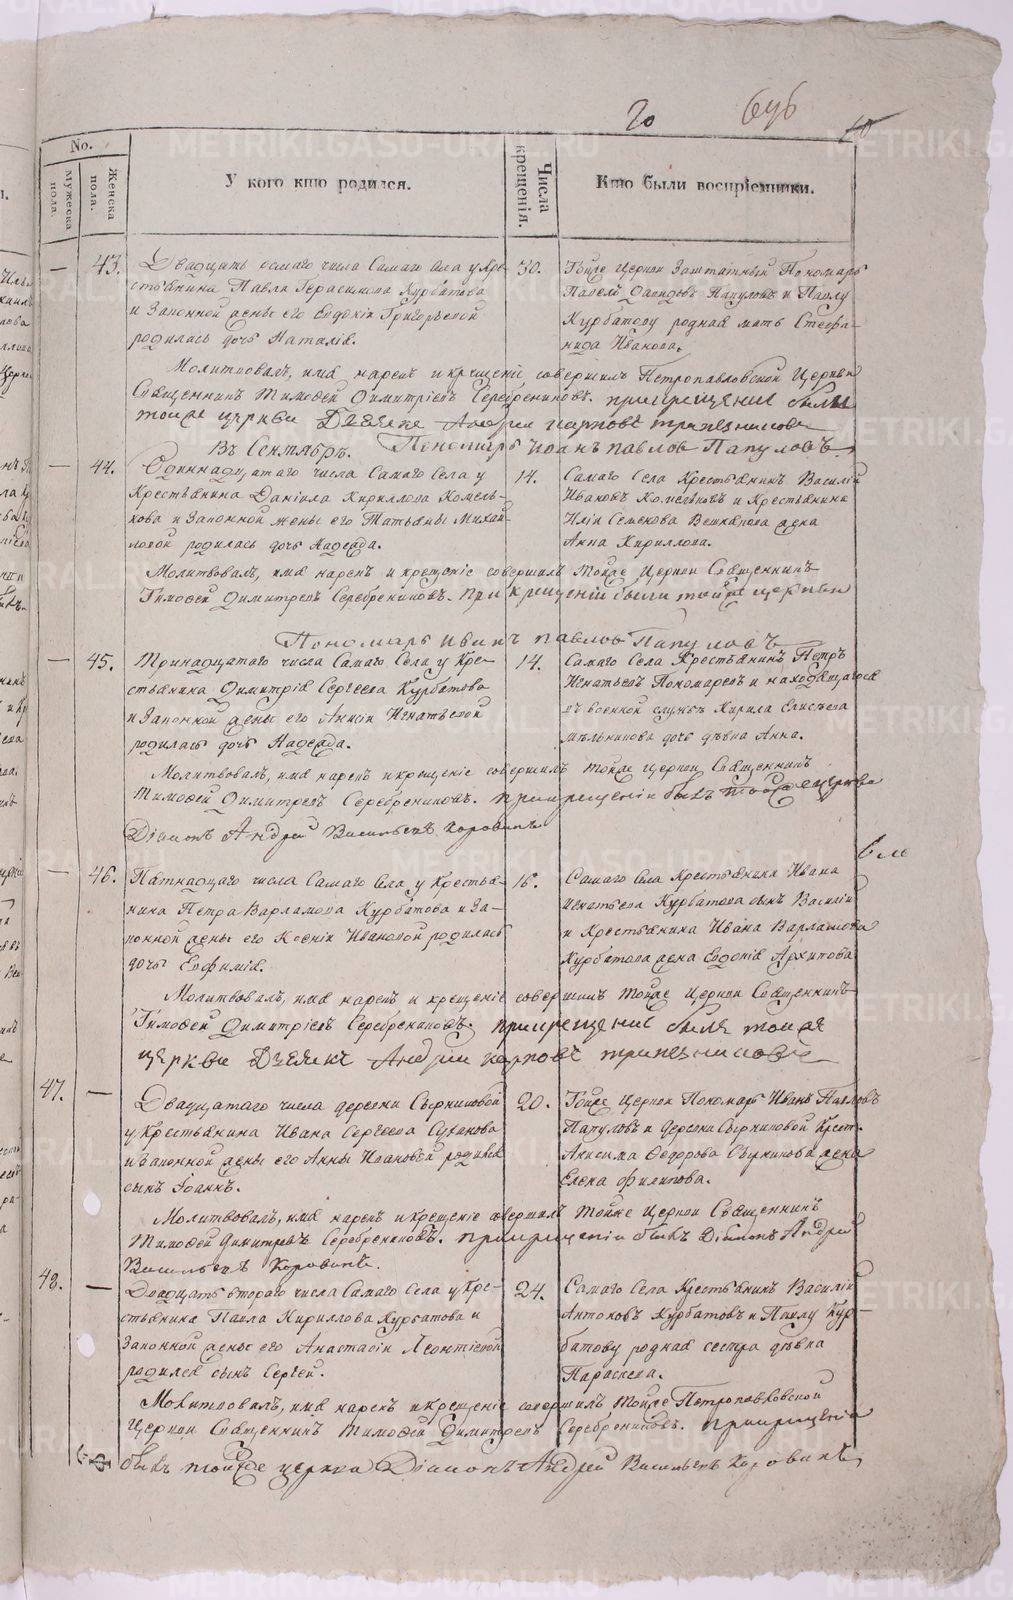 20 696 10
No.
Мужеска пола.
Женска пола.
У кого кто родился.
Числа крещенія.
Кто были воспріемники.
— 43. Двадцать осмаго числа Самаго Села у Кре-
стьянина Павла Герасимова Курбатова
и Законной жены его Евдокіи Григорьевой
родилась дочь Наталія.
30. Тойже Церкви Заштатный Пономарь
Павелъ Давидовъ Папуловъ и Павлу
Курбатову родная мать Стефа-
нида Иванова.
Молитвовалъ, имя нарекъ и крещеніе совершилъ Петропавловской Церкви
Священникъ Тимофей Димитріевъ Серебренниковъ. При крещеніе были
тоиже церкви Дьячекъ Андрей Карповъ Трапезниковъ
Пономарь Иоанъ Павлов Папуловъ
Въ Сентябрѣ.
— 44. Одиннадцатаго числа Самаго Села у
Крестьянина Даніила Кириллова Комель-
кова и Законной жены его Татьяны Михай-
ловой родилась дочь Надежда.
14. Самаго Села Крестьянинъ Василій
Ивановъ Комельковъ и Крестьянина
Иліи Семенова Вешкапова жена
Анна Кириллова.
Молитвовалъ, имя нарекъ и крещеніе совершилъ тойже Церкви Священникъ
Тимофей Димитріевъ Серебренниковъ. При крещеніи были тойже церкви
Пономарь Иванъ Павлов Папуловъ
— 45. Тринадцатаго числа Самаго Села у Кре-
стьянина Димитрія Сергеева Курбатова
и Законной жены его Анисіи Игнатьевой
родилась дочь Надежда.
14. Самаго Села Крестьянинъ Петръ
Игнатьевъ Пономаревъ и находящагося
въ военной службѣ Кирила Елисѣева
Мѣльникова дочь дѣвка Анна.
Молитвовалъ, имя нарекъ и крещеніе совершилъ тойже Церкви Священникъ
Тимофей Димитріевъ Серебренниковъ. При крещеніи былъ тойже церкви
Діаконъ Андрей Васильевъ Коровинъ
— 46. Пятнадцаго числа Самаго Села у Крестья-
нина Петра Варламова Курбатова и За-
конной жены его Ксеніи Ивановой родилась
дочь Евфимія.
16. Самаго Села Крестьянина Ивана
Игнатьева Курбатова сынъ Василій
и Крестьянина Ивана Варламова
Курбатова жена Евдокія Архипова
Молитвовалъ, имя нарекъ и крещеніе совершилъ тойже Церкви Священникъ
Тимофей Димитріевъ Серебренниковъ. При крещеніе былъ тоиже
церкви Дьячекъ Андрей Карповъ Трапезниковъ
47. — Двадцатаго числа деревни Сырниковой
у Крестьянина Ивана Сергеева Суханова
и Законной жены его Анны Ивановой родился
сынъ Іоаннъ.
20. Тойже Церкви Пономарь Иванъ Павловъ
Папуловъ и деревни Сырниковой Крест.
Анисима Федорова Сырникова жена
Елена Филипова.
Молитвовалъ, имя нарекъ и крещеніе совершилъ тойже Церкви Священникъ
Тимофей Димитріевъ Серебренниковъ. При крещеніи былъ Діаконъ Андрей
Васильевъ Коровинъ.
48. — Двадцать втораго числа Самаго Села у Кре-
стьянина Павла Кириллова Курбатова и
Законной жены его Анастасіи Леонтіевой
родился сынъ Сергей.
24. Самаго Села Крестьянинъ Василій
Антоновъ Курбатовъ и Павлу Кур-
батову родная сестра дѣвка
Параскева.
Молитвовалъ, имя нарекъ и крещеніе совершилъ тойже Петропавловской
Церкви Священникъ Тимофей Димитріевъ Серебренниковъ. При крещеніи
былъ тойже церкви Діаконъ Андрей Васильевъ Коровинъ
METRIKI.GASO-URAL.RU